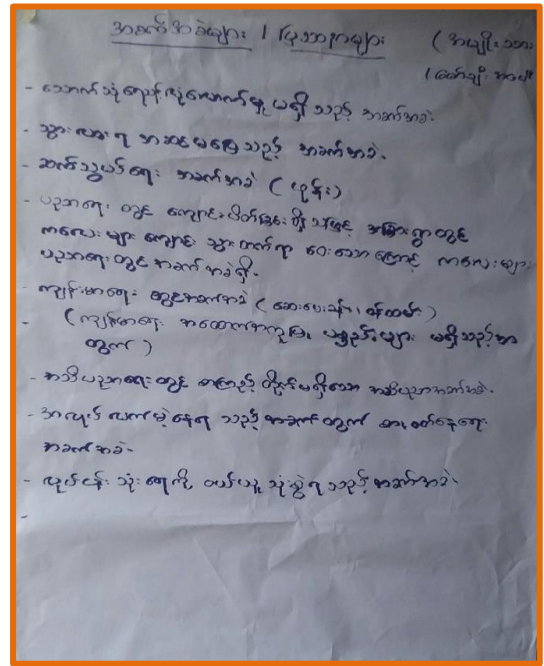 အခက်အခဲများ / ပြဿနာများ (အမျိုးသား
- သောက်သုံးရေလုံလောက်မှု မရှိသည့် အခက်အခဲ.
- သွားလာရ အဆင်မပြေသည့် အခက်အခဲ.
- ဆက်သွယ်ရေး အခက်အခဲ (ဖုန်း)
- ပညာရေး တွင် ကျောင်းပိတ်ခြင်း သို့ဖြင့် အခြားရွာတွင်
ကလေးများ ကျောင်း သွားတက်ရ ဝေးသောကြောင့် ကလေးများ
ပညာရေးတွင် အခက်အခဲရှိ.
- ကျန်းမာရေး တွင်အခက်အခဲ (ဆေးပေးခန်း၊ ဝန်ထမ်း)
- (ကျန်းမာရေး အထောက်အကူပြု ပစ္စည်းများ မရှိသည့်အ
တွက်)
- အသိပညာရေးတွင် စာကြည့်တိုက်မရှိသော အသိပညာအခက်အခဲ.
- အလုပ်လက်မဲ့နေရ သည့်အခက် တွက် စား ဝတ်နေရေး
အခက်အခဲ.
- လုပ်ငန်း သုံး ရေကို ဝယ်ယူ သုံးစွဲရသည့် အခက်အခဲ.
-